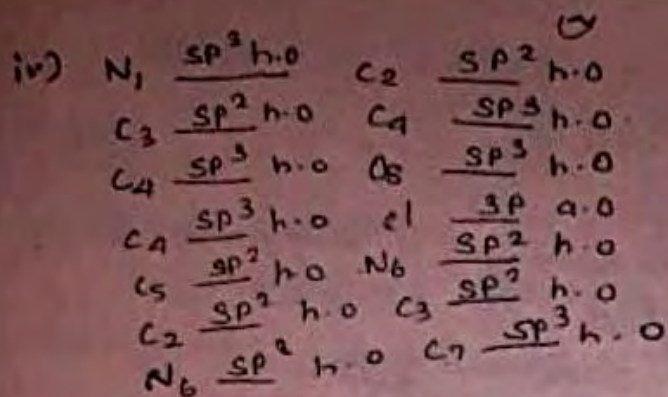 iv) N1 sp3 h.o C2 sp2 h.o
C3 sp2 h.o C4 sp3 h.o
C4 sp3 h.o O5 sp3 h.o
C4 sp3 h.o cl 3p a.o
C5 sp2 h.o N6 sp2 h.o
C2 sp2 h.o C3 sp2 h.o
N6 sp2 h.o C7 sp3 h.o